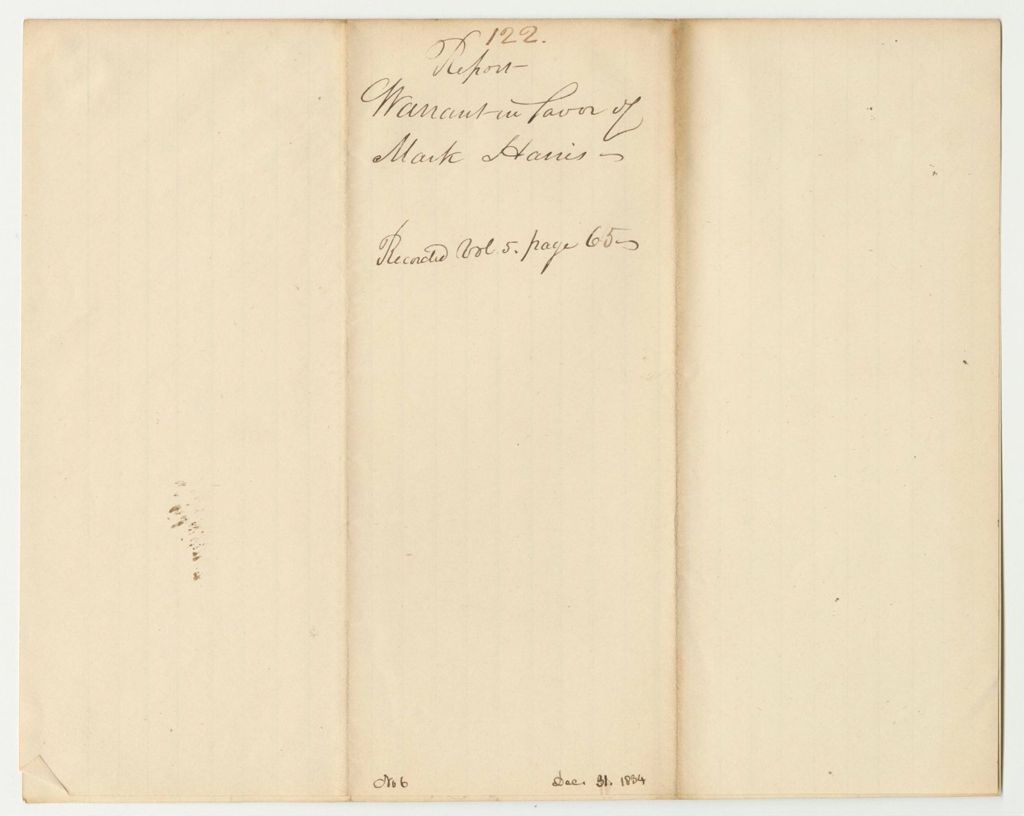 122.
Report
Warrant in favor of
Mark Harris
Recorded Vol 5. page 65
No 6
Dec. 31. 1834